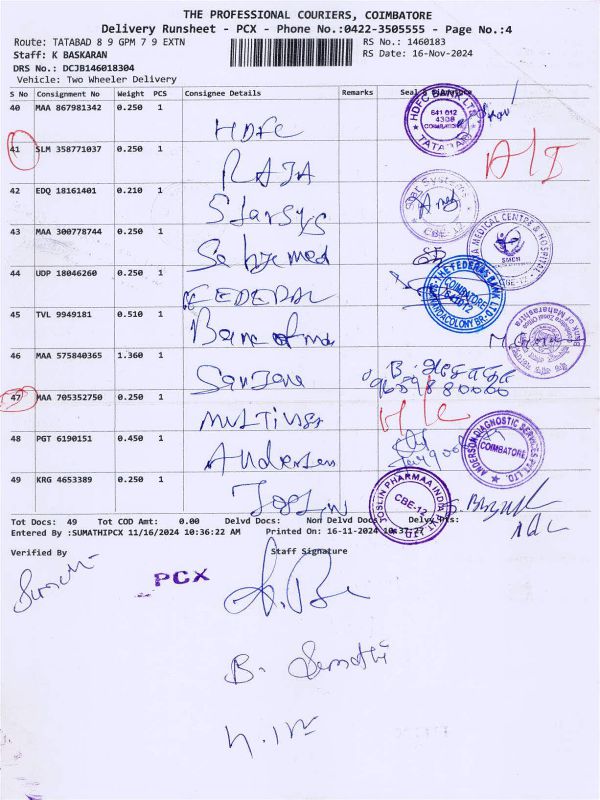 THE PROFESSIONAL COURIERS, COIMBATORE
Delivery Runsheet - PCX - Phone No.:0422-3505555 - Page No.:4
Route: TATABAD 8 9 GPM 7 9 EXTN
RS No.: 1460183
Staff: K BASKARAN
RS Date: 16-Nov-2024
DRS No.: DCJB146018304
Vehicle: Two Wheeler Delivery
S No Consignment No Weight PCS Consignee Details Remarks Seal &
40 MAA 867981342 0.250 1 HDFC
HDFC BANK LTD 641 012 COIMBATORE TATABAD
41 SLM 358771037 0.250 1 RAJA
42 EDQ 18161401 0.210 1 Starsys
CBE-12
43 MAA 300778744 0.250 1
MEDICAL CENTRE & HOSPITAL SMCH
44 UDP 18046260 0.250 1 FEDERAL
THE FEDERAL BANK LTD. COIMBATORE COLONY BR
45 TVL 9949181 0.510 1
Bank of Maharashtra
46 MAA 575840365 1.360 1 Sanjana
47 MAA 705352750 0.250 1
48 PGT 6190151 0.450 1 Anderson
ANDERSON DIAGNOSTIC SERVICES PVT. LTD. COIMBATORE
49 KRG 4653389 0.250 1 Joslin
JOSLIN PHARMAA INDIA PVT LTD CBE-12
Tot Docs: 49 Tot COD Amt: 0.00 Delvd Docs: Non Delvd Docs:
Entered By :SUMATHIPCX 11/16/2024 10:36:22 AM Printed On: 16-11-2024
Verified By Staff Signature
PCX
B. Sumathi